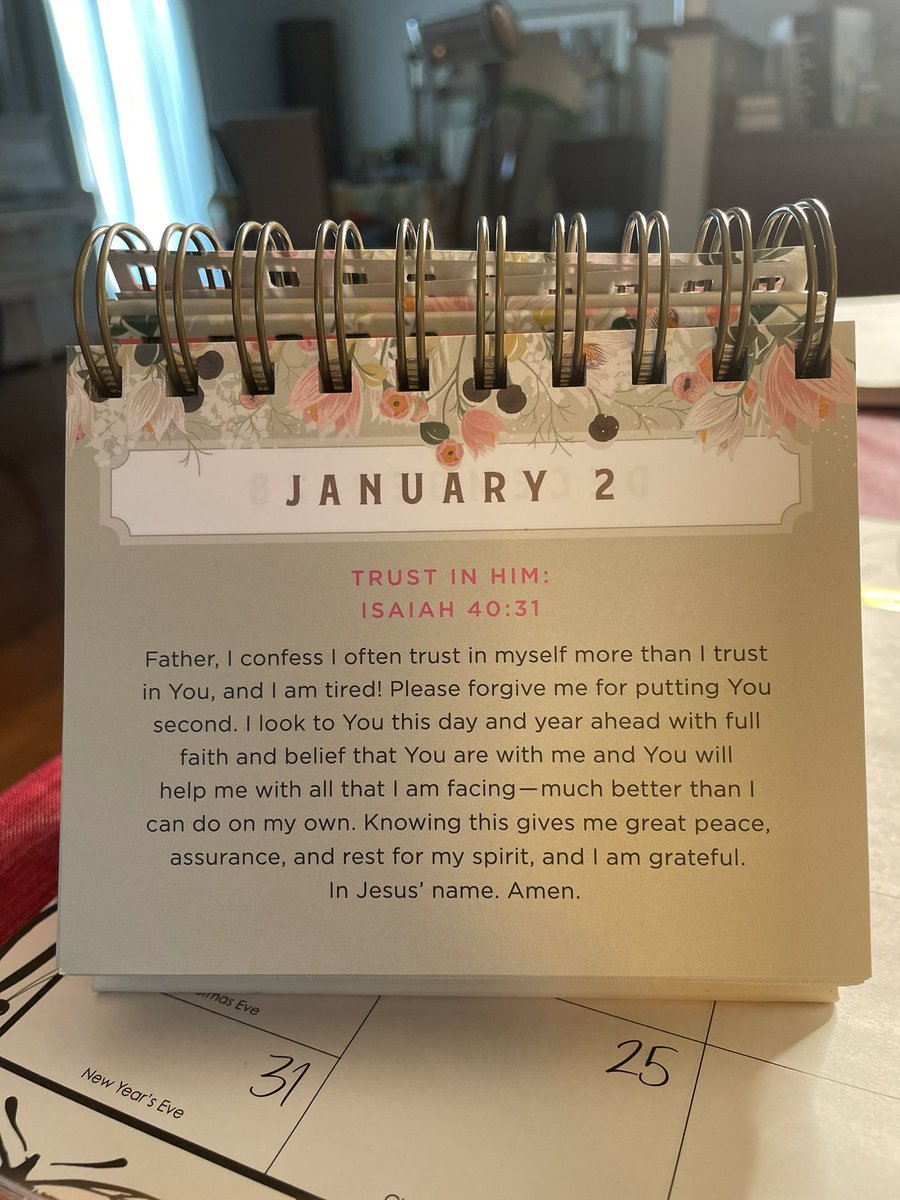 JANUARY 2
TRUST IN HIM:
ISAIAH 40:31
Father, I confess I often trust in myself more than I trust
in You, and I am tired! Please forgive me for putting You
second. I look to You this day and year ahead with full
faith and belief that You are with me and You will
help me with all that I am facing—much better than I
can do on my own. Knowing this gives me great peace,
assurance, and rest for my spirit, and I am grateful.
In Jesus’ name. Amen.
Eve
31
25
New Year's Eve